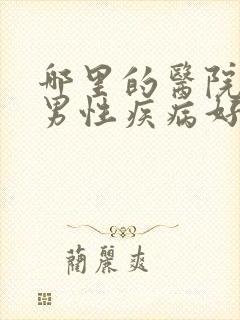 哪里的醫院
男性疾病好
蔺麗爽